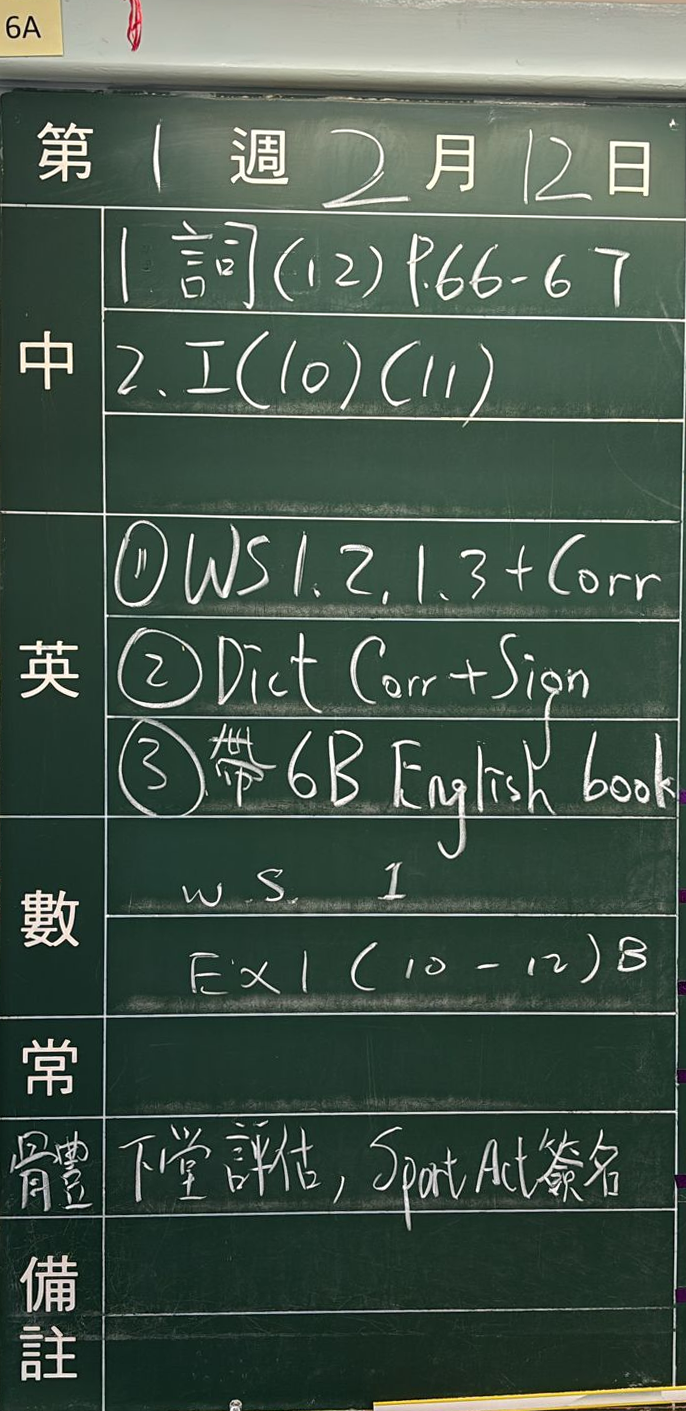 6A
第 1 週 2 月 12 日
中
1. 詞(12) P.66-67
2. I(10)(11)
英
① WS 1.2, 1.3 + Corr
② Dict Corr + Sign
③ 帶 6B English book
數
W.S. 1
Ex 1 (10 - 12) B
常
體 下堂評估, Sport Act 簽名
備註